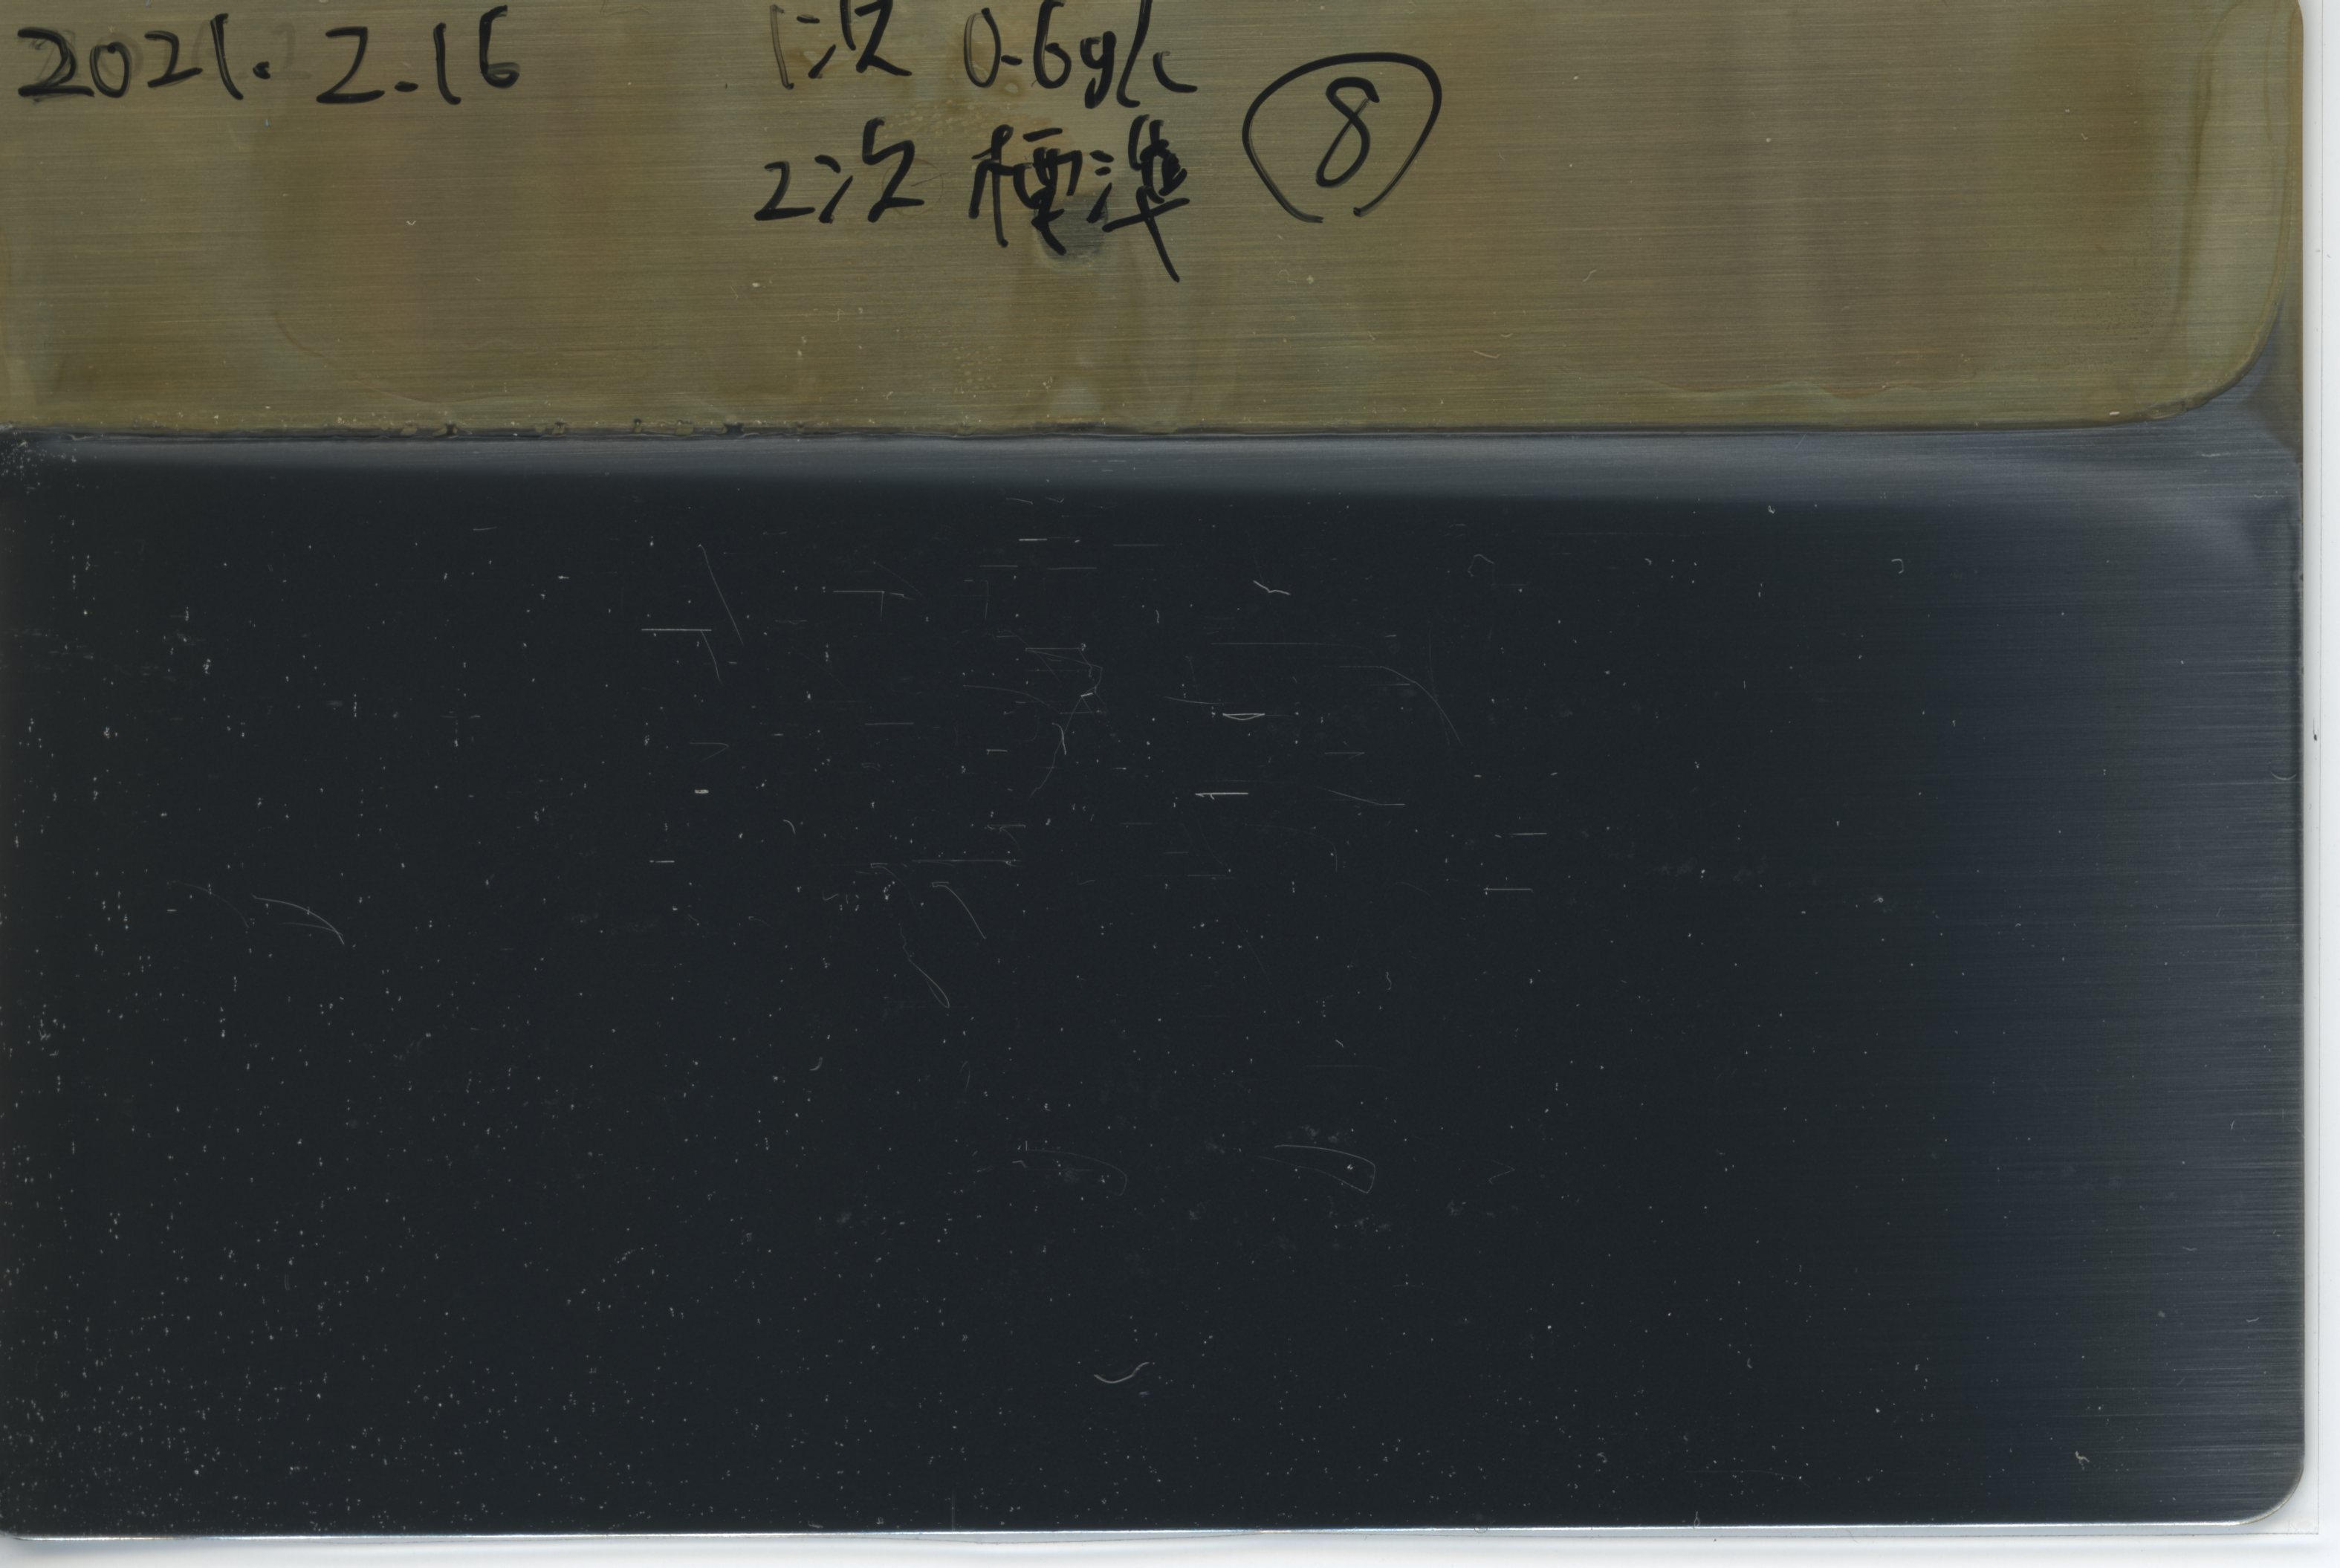 2021.2.16
1次 0.6g/L
2次 標準
⑧